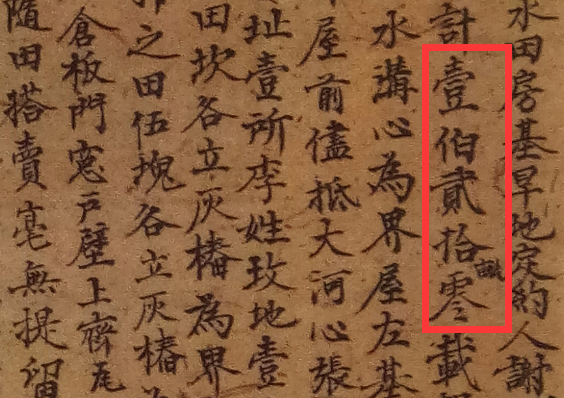 水田房基旱地定約人謝
計壹伯貳拾畝零載
水溝心為界屋左基
屋前儘抵大河心張
址壹所李姓玫地壹
田坎各立灰樁為界
之田伍塊各立灰樁
倉板門窓戶壁上齊瓦
隨田搭賣毫無提留